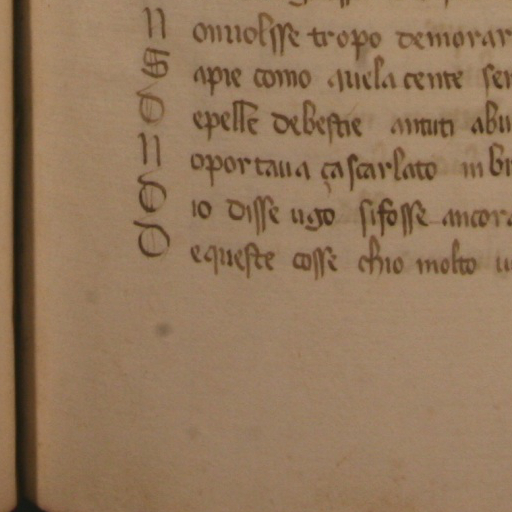 N onuolsse tropo demorar
S apie como quela cente ser
D epelle debestie antuti abu
N oportaua ça scarlato in br
D io disse ugo sifosse ancora
D equeste cosse chio molto u